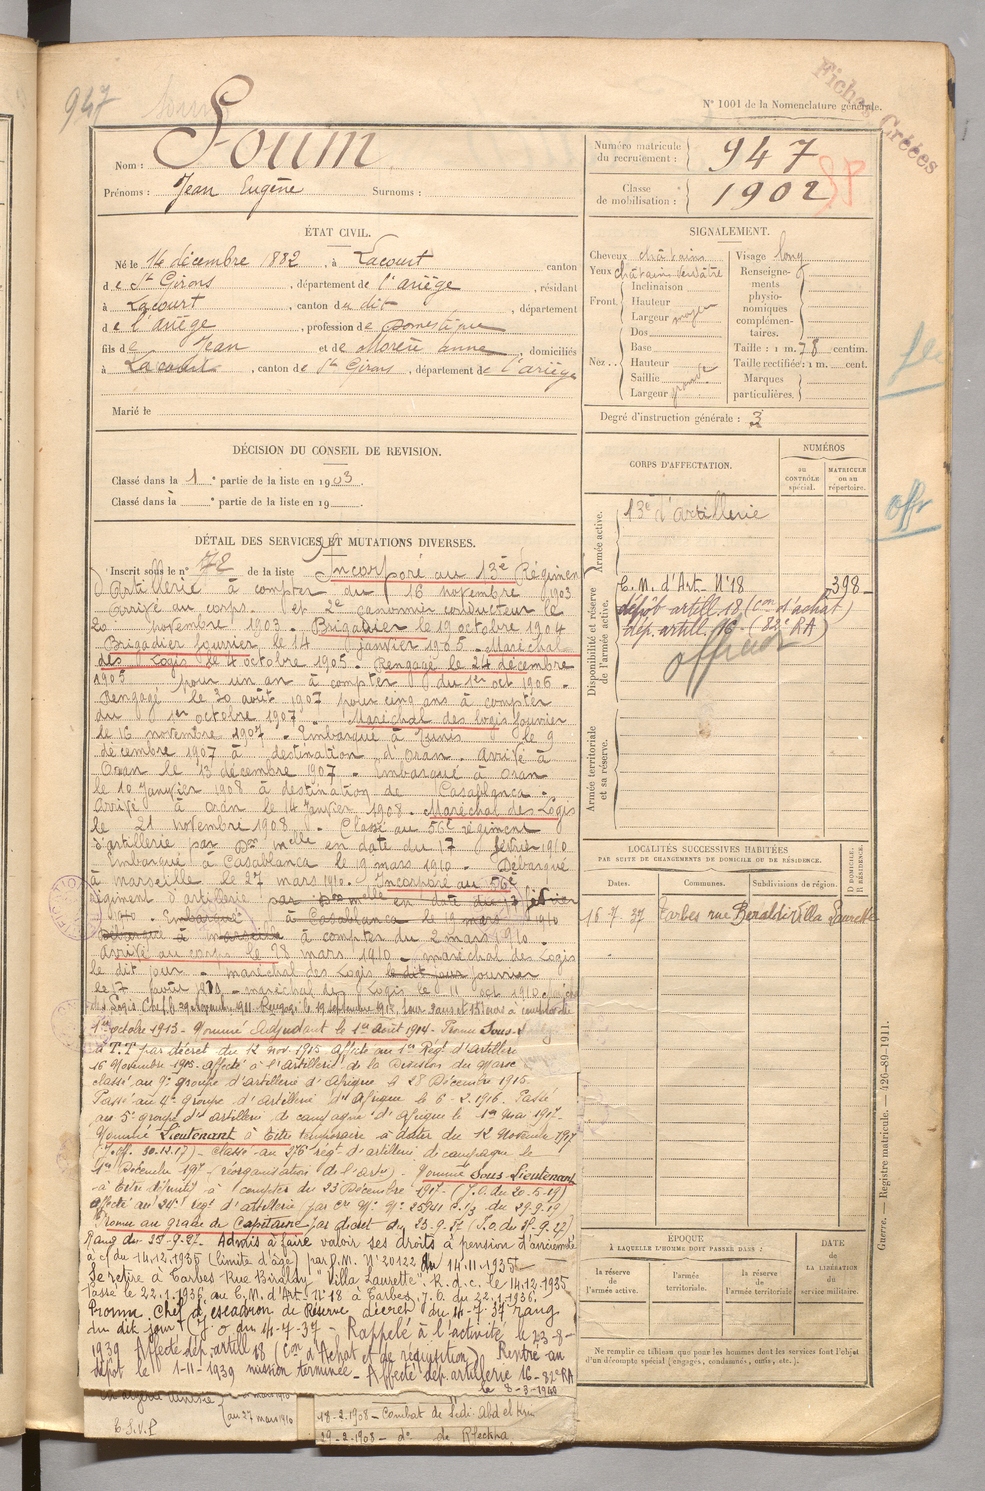 947
N° 1001 de la Nomenclature générale.
Fiches Créées
Nom : Soum
Prénoms : Jean Eugène Surnoms :
Numéro matricule du recrutement : 947
Classe de mobilisation : 1902
ÉTAT CIVIL.
Né le 14 décembre 1882, à Lacourt canton
de St Girons, département de l'Ariège, résidant
à Lacourt, canton du dit, département
de l'Ariège, profession de Domestique
fils de Jean et de anne, domiciliés
à Lacourt, canton de St Girons, département de l'Ariège
Marié le
SIGNALEMENT.
Cheveux châtains
Yeux châtains verdâtre
Front. Inclinaison
Hauteur
Largeur moyen
Nez. Dos
Base
Hauteur
Saillie
Largeur grande
Visage long
Renseignements physionomiques complémentaires.
Taille : 1 m. 78 centim.
Taille rectifiée : 1 m. cent.
Marques particulières.
Degré d'instruction générale : 3
DÉCISION DU CONSEIL DE REVISION.
Classé dans la 1e partie de la liste en 1903
Classé dans la e partie de la liste en 19
DÉTAIL DES SERVICES ET MUTATIONS DIVERSES.
Inscrit sous le n° 72 de la liste Incorporé au 13e Régiment
d'Artillerie à compter du 16 novembre 1903
Arrivé au corps et 2e canonnier conducteur le
novembre 1903. Brigadier le 19 octobre 1904
Brigadier fourrier le 14 janvier 1905. Maréchal
des Logis le 4 octobre 1905. Rengagé le 24 décembre
1905 pour un an à compter du 1er oct 1906.
Rengagé le 30 août 1907 pour cinq ans à compter
du 1er octobre 1907. Maréchal des logis fourrier
le 16 novembre 1907. Embarqué à Tunis le 9
décembre 1907 à destination d'Oran. Arrivé à
Oran le 13 décembre 1907. Embarqué à Oran
le 10 Janvier 1908 à destination de Casablanca.
Arrivé à Oran le 14 Janvier 1908. Maréchal des Logis
le 21 novembre 1908. Classé au 56e régiment
d'artillerie par Don melle en date du 17 février 1910
Embarqué à Casablanca le 19 mars 1910. Débarqué
à marseille le 27 mars 1910. Incorporé au 56e
régiment d'artillerie par Don melle en date du 17 février
1910. Embarqué à Casablanca le 19 mars 1910
Débarqué à marseille à compter du 2 mars 1910.
Arrivé au corps le 28 mars 1910. maréchal des Logis
le dit jour. maréchal des Logis le dit jour fourrier
maréchal des Logis le 11 oct 1910
des Logis Chef le 29 Novembre 1911. Rengagé le 19 septembre
1er octobre 1913. Nommé Adjudant le 1er Août 1914. Promu Sous-
à T.T par décret du 12 nov. 1915 Affecté au 1er Régt d'Artillerie
16 Novembre 1915. Affecté à l'Artillerie de la Division du Maroc
classé au 9e groupe d'artillerie d'Afrique le 28 Décembre 1915.
Passé au 4e groupe d'artillerie d'Afrique le 6-2.1916. Passé
au 5e groupe d'artillerie de campagne d'Afrique le 1er Mai 1917.
Nommé Lieutenant à titre temporaire à dater du 12 Novembre 1917
(J.Off. 30.12.17). classé au 276 régt d'artillerie de campagne le
1er Décembre 1917 (réorganisation de l'arte). Nommé Sous-Lieutenant
à titre définitif à compter du 23 Décembre 1917. (J.O. du 20-5-19)
affecté au 24e régt d'artillerie
Promu au grade de Capitaine par décret du 25.9.27 (J.O. du 27.9.27)
Rang du 25-9-27. Admis à faire valoir ses droits à pension d'ancienneté
à c/ du 14.12.1935 (limite d'âge) par D.M. N° 20122 du 14.11.1935
Se retire à Tarbes Rue Biraldy "Villa Laurette". R.d.c. le 14.12.1935
Passé le 22.1.1936 au C.M. d'Art. N° 18 à Tarbes. J.O. du 22.1.1936.
Promu Chef d'escadron de Réserve décret du 4-7-37 rang
du dit jour (J.O du 4-7-37 - Rappelé à l'activité le 23-8-
1939 Affecté dép. artill 18 (Con d'Achat et de réquisition) Rentré au
dépôt le 1-11-1939 mission terminée. Affecté dép. artillerie 16-82e RA
le 8-3-1940
au 27 mars 1910
T.S.V.P
18-2.1908 - Combat de Sidi Abd el Krim
29-2.1908 - do de Rfeckha
CORPS D'AFFECTATION.
NUMÉROS
au CONTRÔLE spécial.
MATRICULE ou au répertoire.
Armée active.
13e d'artillerie
Disponibilité et réserve de l'armée active.
C.M. d'Art. N° 18 398
dépôt artill. 18 (Con d'achat)
dép. artill. 16 - (82e RA)
officier
Armée territoriale et sa réserve.
off
LOCALITÉS SUCCESSIVES HABITÉES
PAR SUITE DE CHANGEMENTS DE DOMICILE OU DE RÉSIDENCE.
Dates. Communes. Subdivisions de région. D DOMICILE. R RÉSIDENCE.
18-7.37 Tarbes rue Beraldi Villa Laurette
ÉPOQUE
À LAQUELLE L'HOMME DOIT PASSER DANS :
la réserve de l'armée active.
l'armée territoriale.
la réserve de l'armée territoriale
DATE de LA LIBÉRATION du service militaire.
Ne remplir ce tableau que pour les hommes dont les services font l'objet
d'un décompte spécial (engagés, condamnés, omis, etc.).
Guerre. — Registre matricule. — 426-89-1911.